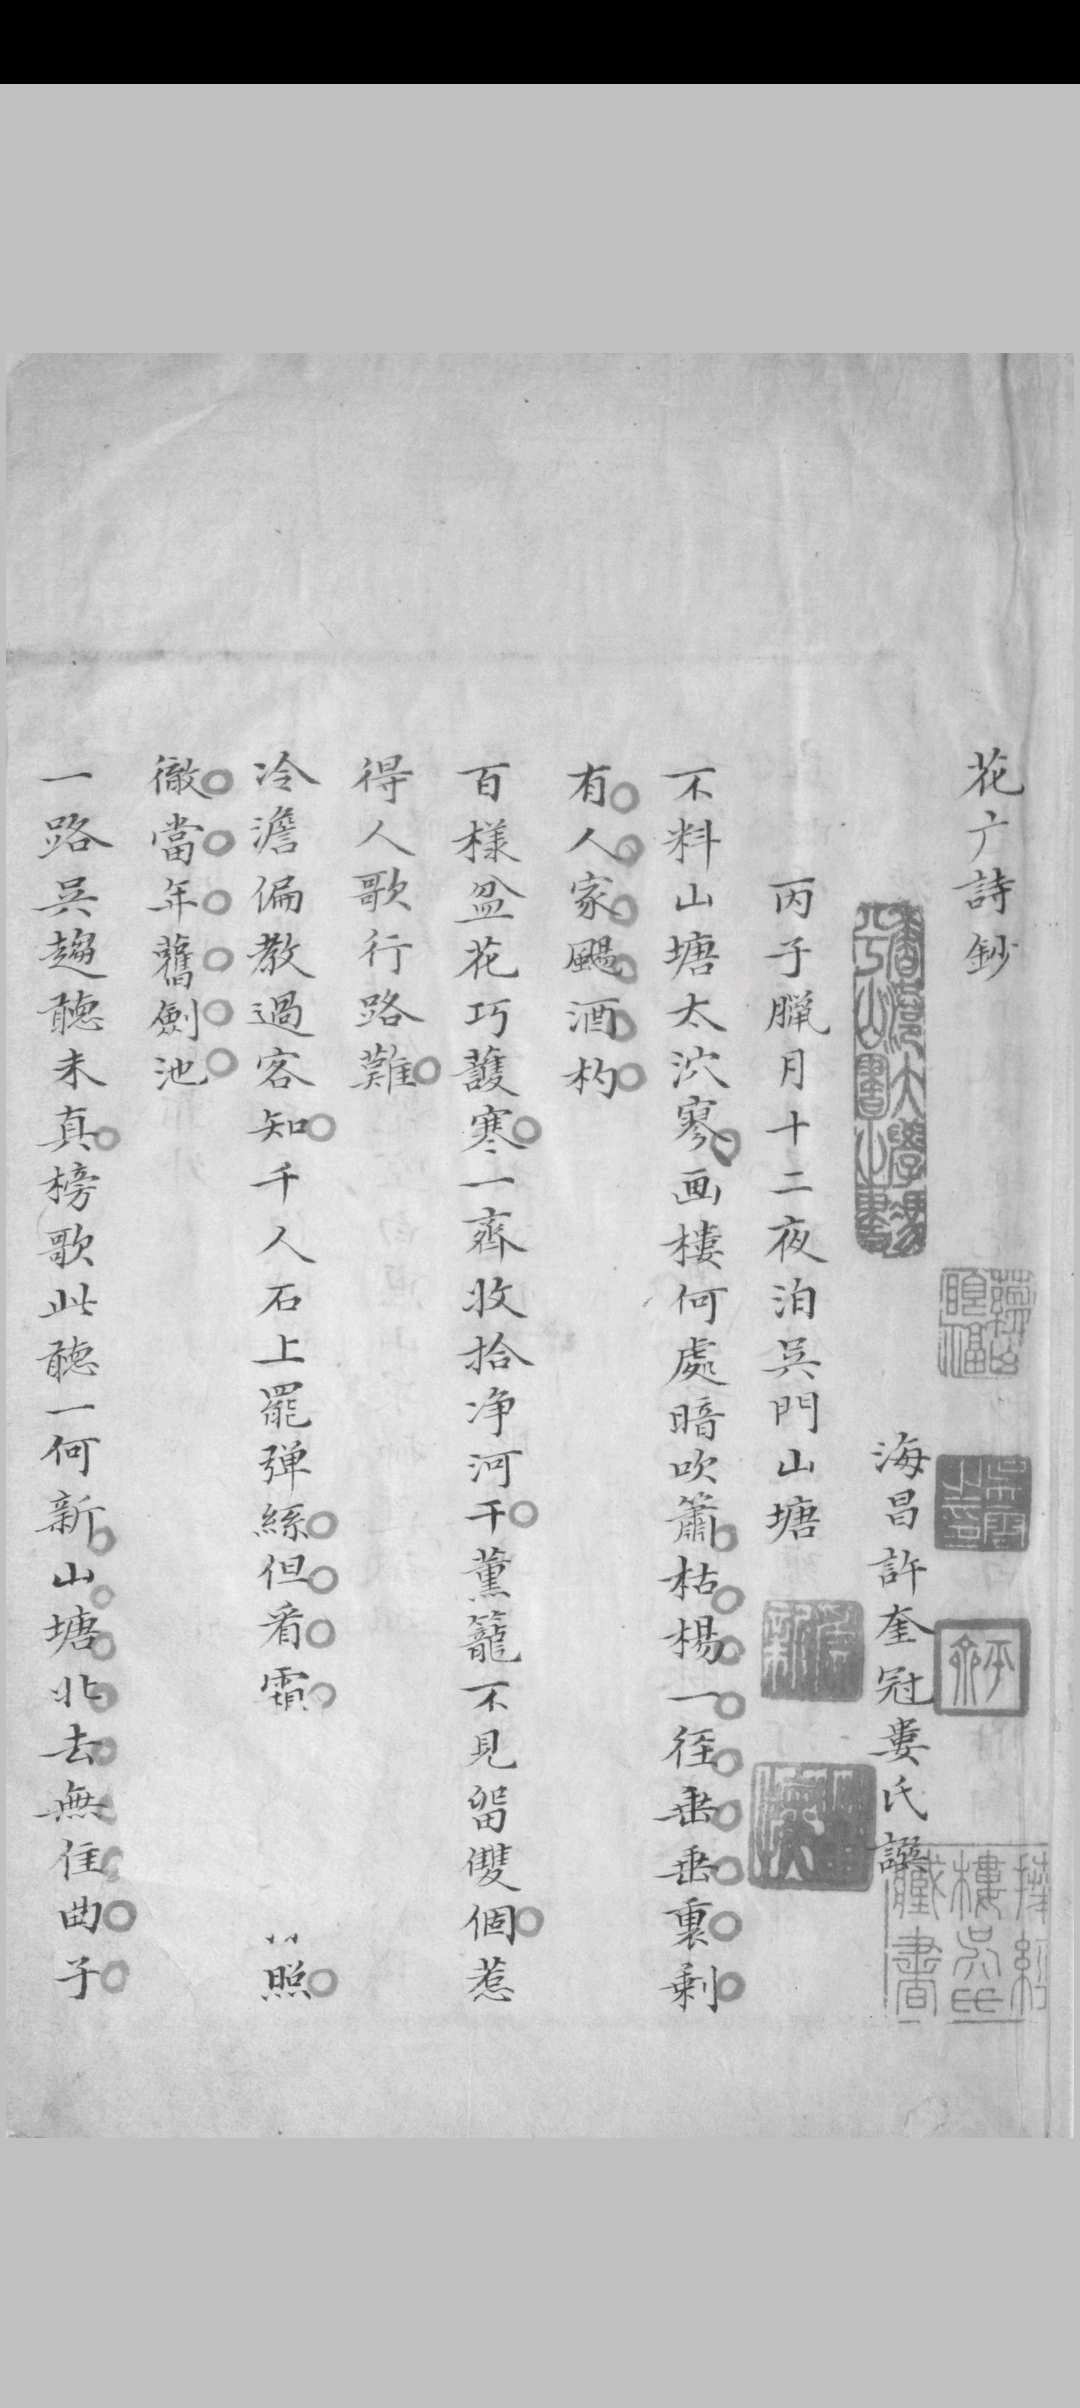 花广詩鈔
海昌許奎冠婁氏譔
丙子臘月十二夜泊吳門山塘
不料山塘太泬寥画樓何處暗吹簫枯楊一徑垂垂裏剩
有人家颺酒杓
百樣盆花巧護寒一齊收拾净河干薰籠不見留雙個惹
得人歌行路難
冷澹偏教過客知千人石上罷弹絲但看霜 照
徹當年舊劍池
一路吳趨聽未真榜歌此聽一何新山塘北去無佳曲子
香港大學馮平山圖書館藏書
捧
樓吳氏
藏書